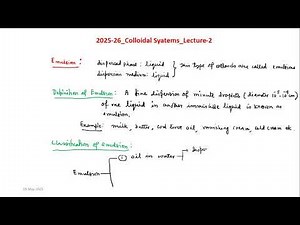 2025-26_Colloidal Syatems_Lecture-2
Emulsion: dispersed phase: liquid } This type of colloids are called emulsions
dispersion medium: liquid
Definition of Emulsion: A fine dispersion of minute droplets (diameter
of one liquid in another immiscible liquid is known as
emulsion.
Example: milk, butter, cod liver oil, vanishing cream, cold cream etc
Classification of Emulsion:
(1) oil in water → Disper
Emulsion